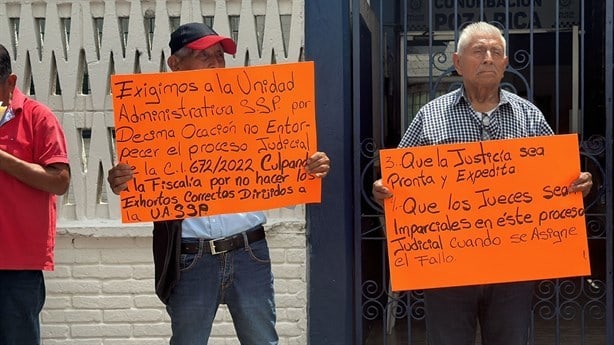 CONURBACIÓN
POLÍTICA
Exigimos a la Unidad
Administrativa SSP por
Decima Ocación no Entor-
pecer el proceso Judicial
de la C.I. 672/2022 Culpando
a la Fiscalia por no hacer los
Exhortos Correctos Dirijidos a
la U.A.SSP
3. Que la Justicia sea
Pronta y Expedita
Que los Jueces sea
Imparciales en éste proceso
Judicial cuando se Asigne
el Fallo.